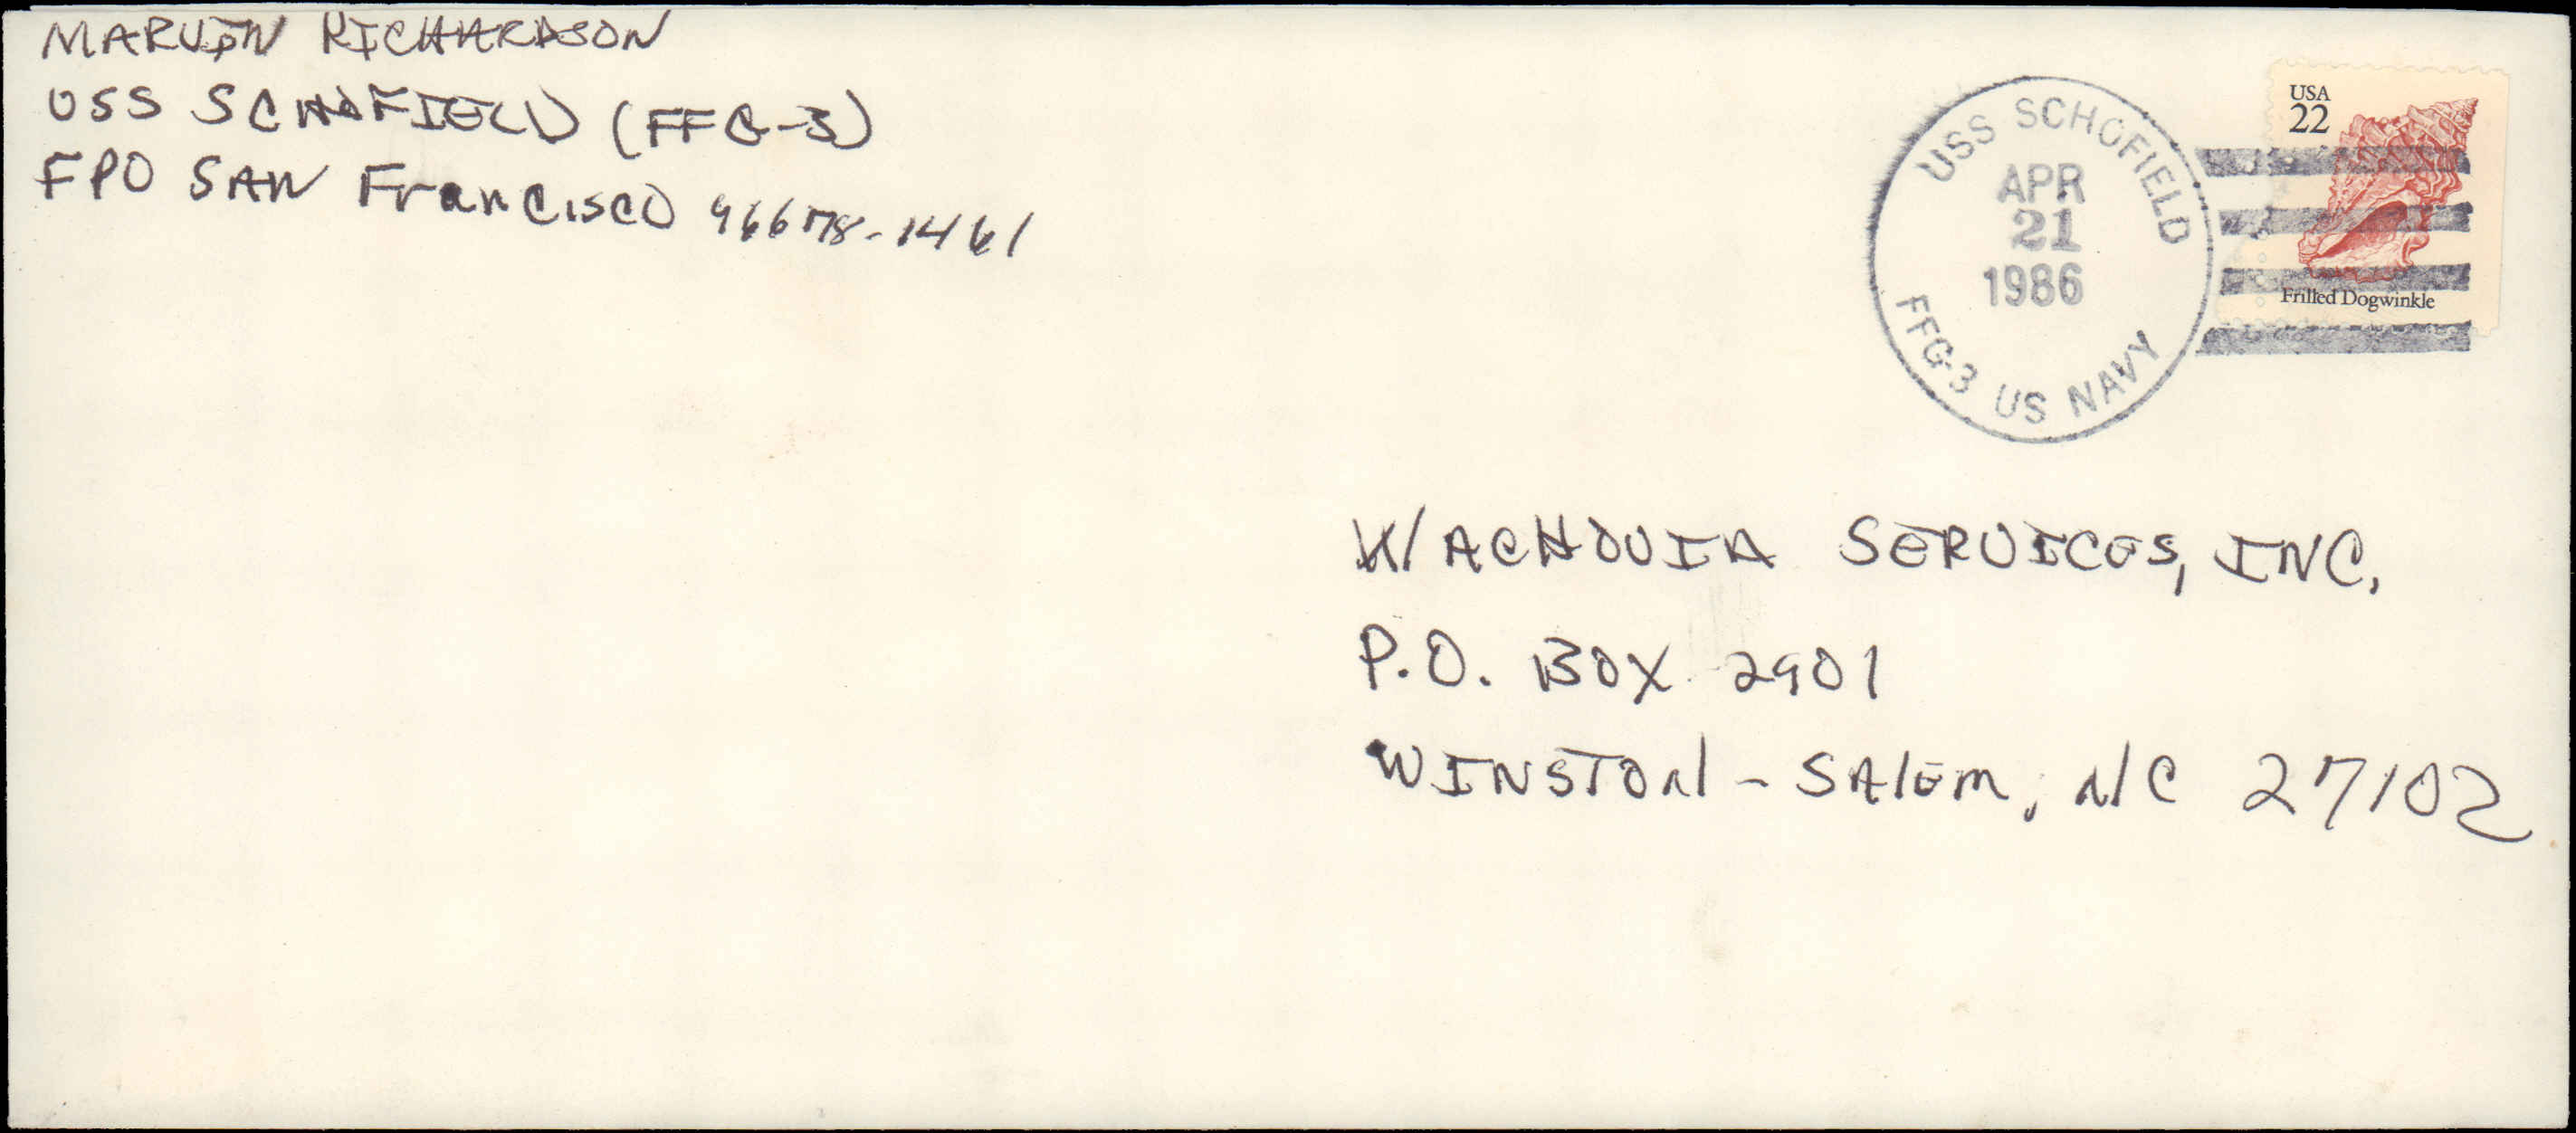 MARVIN RICHARDSON
USS SCHOFIELD (FFG-3)
FPO SAN FranCisco 96678-1461
USS SCHOFIELD
APR
21
1986
FFG-3 US NAVY
USA
22
Frilled Dogwinkle
WACHOVIA SERVICES, INC.
P.O. BOX 2901
WINSTON-SALEM, NC 27102